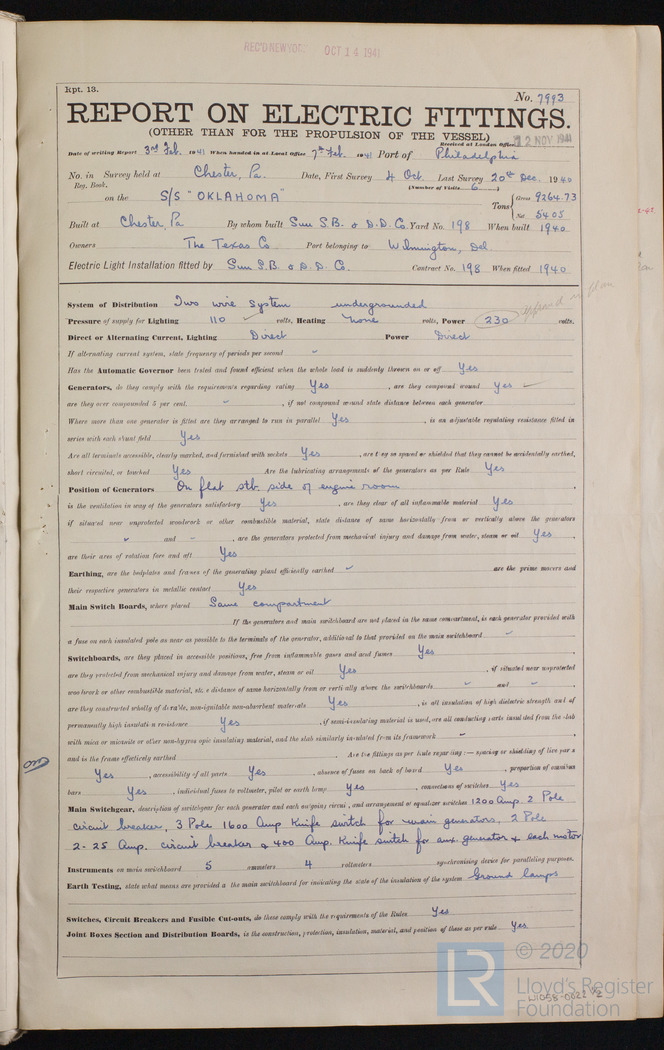 REC'D NEW YORK OCT 14 1941
Rpt. 13.
No. 7993
REPORT ON ELECTRIC FITTINGS.
(OTHER THAN FOR THE PROPULSION OF THE VESSEL)
Received at London Office 12 NOV 1941
Date of writing Report 3rd Feb. 1941 When handed in at Local Office 7th Feb. 1941 Port of Philadelphia
No. in Survey held at Chester, Pa. Date, First Survey 4 Oct. Last Survey 20th Dec. 1940
Reg. Book. (Number of Visits 6)
on the S/S "OKLAHOMA" Tons { Gross 9264.73
Net 5405
Built at Chester, Pa By whom built Sun S.B. & D.D. Co. Yard No. 198 When built 1940
Owners The Texas Co. Port belonging to Wilmington, Del
Electric Light Installation fitted by Sun S.B. & D.D. Co. Contract No. 198 When fitted 1940
System of Distribution Two wire system undergrounded
Pressure of supply for Lighting 110 volts, Heating None volts, Power 230 volts.
Direct or Alternating Current, Lighting Direct Power Direct
If alternating current system, state frequency of periods per second
Has the Automatic Governor been tested and found efficient when the whole load is suddenly thrown on or off Yes
Generators, do they comply with the requirements regarding rating Yes, are they compound wound Yes
are they over compounded 5 per cent., if not compound wound state distance between each generator
Where more than one generator is fitted are they arranged to run in parallel Yes, is an adjustable regulating resistance fitted in
series with each shunt field Yes
Are all terminals accessible, clearly marked, and furnished with sockets Yes, are they so spaced or shielded that they cannot be accidentally earthed,
short circuited, or touched Yes Are the lubricating arrangements of the generators as per Rule Yes
Position of Generators On flat stb. side of engine room
is the ventilation in way of the generators satisfactory Yes, are they clear of all inflammable material Yes
if situated near unprotected woodwork or other combustible material, state distance of same horizontally from or vertically above the generators
and, are the generators protected from mechanical injury and damage from water, steam or oil Yes.
are their axes of rotation fore and aft Yes
Earthing, are the bedplates and frames of the generating plant efficiently earthed are the prime movers and
their respective generators in metallic contact Yes
Main Switch Boards, where placed Same compartment
If the generators and main switchboard are not placed in the same compartment, is each generator provided with
a fuse on each insulated pole as near as possible to the terminals of the generator, additional to that provided on the main switchboard
Switchboards, are they placed in accessible positions, free from inflammable gases and acid fumes Yes
are they protected from mechanical injury and damage from water, steam or oil Yes, if situated near unprotected
woodwork or other combustible material, state distance of same horizontally from or vertically above the switchboards and
are they constructed wholly of durable, non-ignitable non-absorbent materials Yes, is all insulation of high dielectric strength and of
permanently high insulation resistance Yes, if semi-insulating material is used, are all conducting parts insulated from the slab
with mica or micanite or other non-hygroscopic insulating material, and the slab similarly insulated from its framework
and is the frame effectively earthed. Are the fittings as per Rule regarding:— spacing or shielding of live parts
Yes, accessibility of all parts Yes, absence of fuses on back of board Yes, proportion of omnibus
bars Yes, individual fuses to voltmeter, pilot or earth lamp Yes, connections of switches Yes
Main Switchgear, description of switchgear for each generator and each outgoing circuit, and arrangement of equalizer switches 1200 Amp. 2 Pole
circuit breaker, 3 Pole 1600 Amp Knife switch for main generators, 2 Pole
2-25 Amp. circuit breaker & 400 Amp. Knife switch for aux. generator & each motor
Instruments on main switchboard 5 ammeters 4 voltmeters synchronising device for paralleling purposes.
Earth Testing, state what means are provided on the main switchboard for indicating the state of the insulation of the system Ground lamps
Switches, Circuit Breakers and Fusible Cut-outs, do these comply with the requirements of the Rules Yes
Joint Boxes Section and Distribution Boards, is the construction, protection, insulation, material, and position of these as per rule Yes
© 2020
LR
Lloyd's Register
Foundation
W1058-0022 1/2